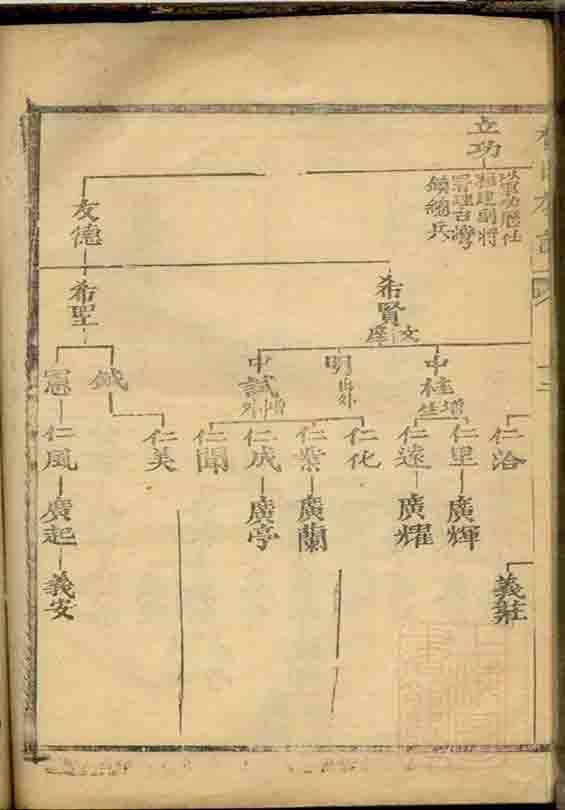 立功
以軍功歷任
福建副將
署理台灣
鎮總兵
友德
希賢
文庠
希聖
中桂
增生
明
出外
中試
增
外
鉞
憲
仁洽
仁里
仁遠
仁化
仁業
仁成
仁聞
仁美
仁風
廣輝
廣耀
廣蘭
廣亭
廣起
義莊
義安